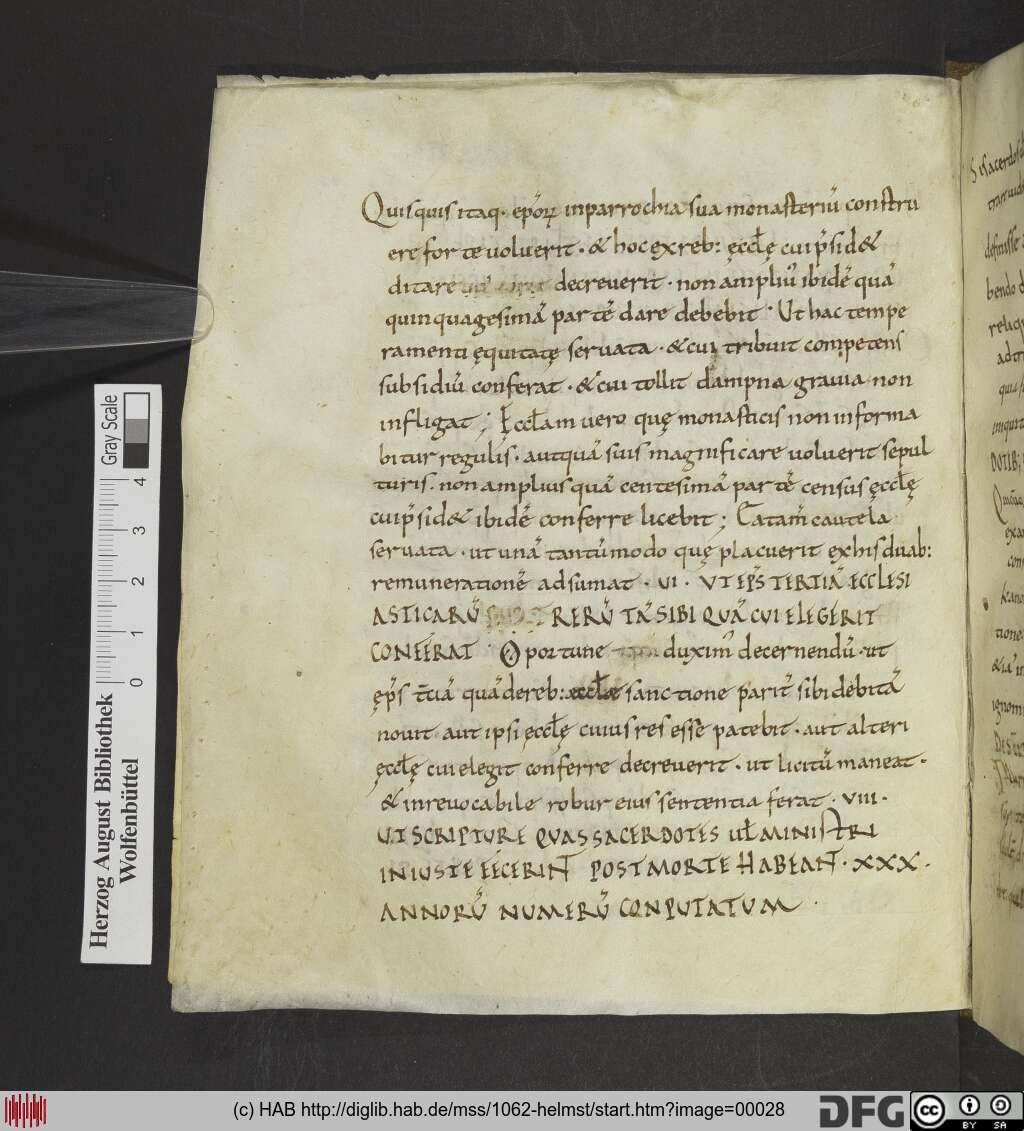 Quisquis itaq· ep̄orꝝ inparrochia sua monasteriū constru
ere forte voluerit · & hoc exreb: ęccłę cui p̄sid&
ditare decreverit · non ampliu᷒ ibidē quā
quinquagesimā partē dare debebit · Ut hac tempe
ramenti ęquitatę servata · & cui tribuit competens
subsidiū conferat · & cui tollit dampna gravia non
infligat ; Ęccłam vero quę monasticis non informa
bitur regulis · aut quā suis magnificare voluerit sepul
turis · non amplius quā centesimā partē census ęccłę
cui p̄sid& ibidē conferre licebit ; Eatam̄ cautela
servata · ut unā tantūmodo quę placuerit ex his duab:
remunerationē adsumat · VI · UT EP̄S TERTIĀ ECCLESI
ASTICARŪ RERŪ TĀ SIBI QUĀ CUI ELEGERIT
CONFERAT · Oportune duxim᷒ decernendū · ut
ęp̄s t̄ciā quā dereb: ęccłę sanctione patr̄ sibi debitā
novit aut ipsi ęccłę cuius res esse patebit · aut alteri
ęccłę cui elegit conferre decreverit · ut licitū maneat ·
& inrevocabile robur eius sententia ferat · VIII ·
UT SCRIPTURE QUAS SACERDOTES UŁ MINISTRI
INIUSTE FECERINT POST MORTE HABEANT · XXX ·
ANNORŪ NUMERŪ CONPUTATUM ·
Gray Scale
0 1 2 3 4
Herzog August Bibliothek
Wolfenbüttel
(c) HAB http://diglib.hab.de/mss/1062-helmst/start.htm?image=00028
DFG
cc BY SA